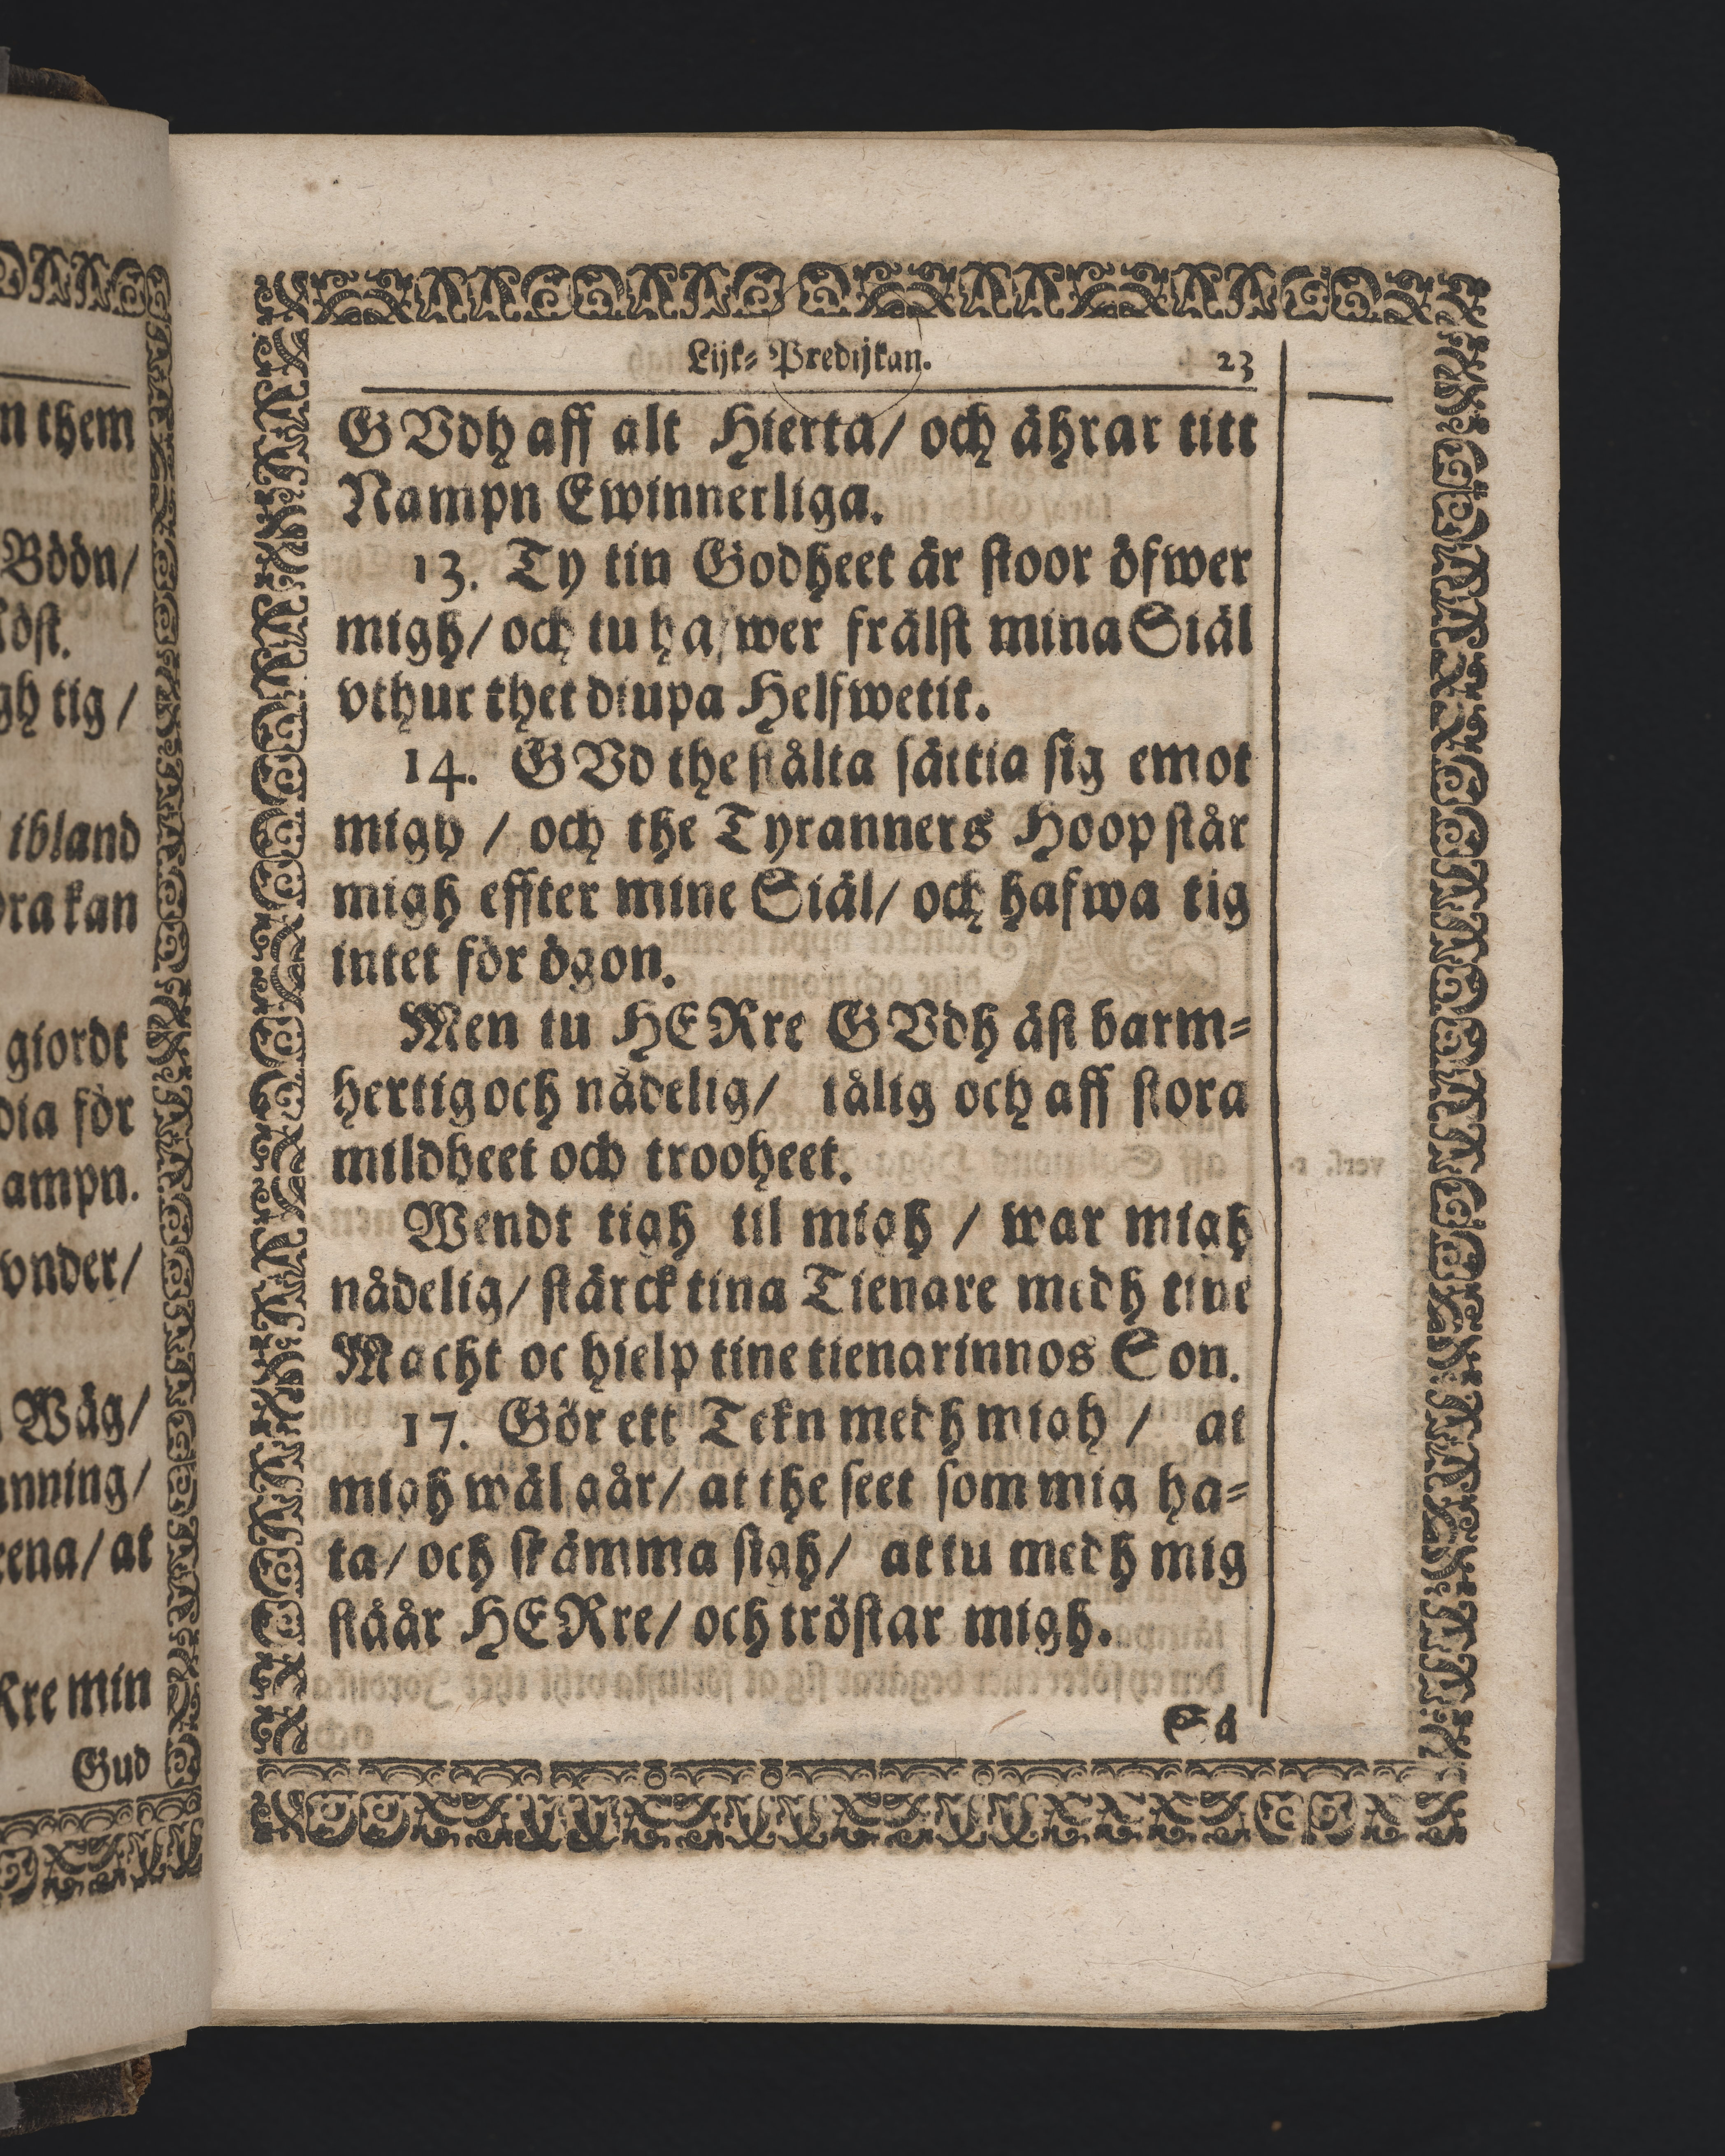 n them
Böön/
gh tig /
ibland
ra kan
giordt
dia för
ampn.
vnder/
Wäg/
anning/
rena/ at
Rre min
Gud
Lijk-Predijkan. 23
GVdh aff alt Hierta/ och ährar titt
Nampn Ewinnerliga.
13. Ty tin Godheet är stoor öfwer
migh/ och tu hafwer frälst mina Siäl
vthur thet diupa Helfwetit.
14. GVd the stålta sättia sig emot
migh / och the Tyranners Hoop står
migh effter mine Siäl/ och hafwa tig
intet för ögon.
Men tu HERre GVdh äst barm-
hertig och nådelig/ tålig och aff stora
mildheet och trooheet.
Wendt tigh til migh / war migh
nådelig/ stärck tina Tienare medh tine
Macht oc hielp tine tienarinnos Son.
17. Gör ett Tekn medh migh / at
migh wäl går/ at the seet som mig ha-
ta/ och skämma sigh/ at tu medh mig
ståår HERre/ och tröstar migh.
Så